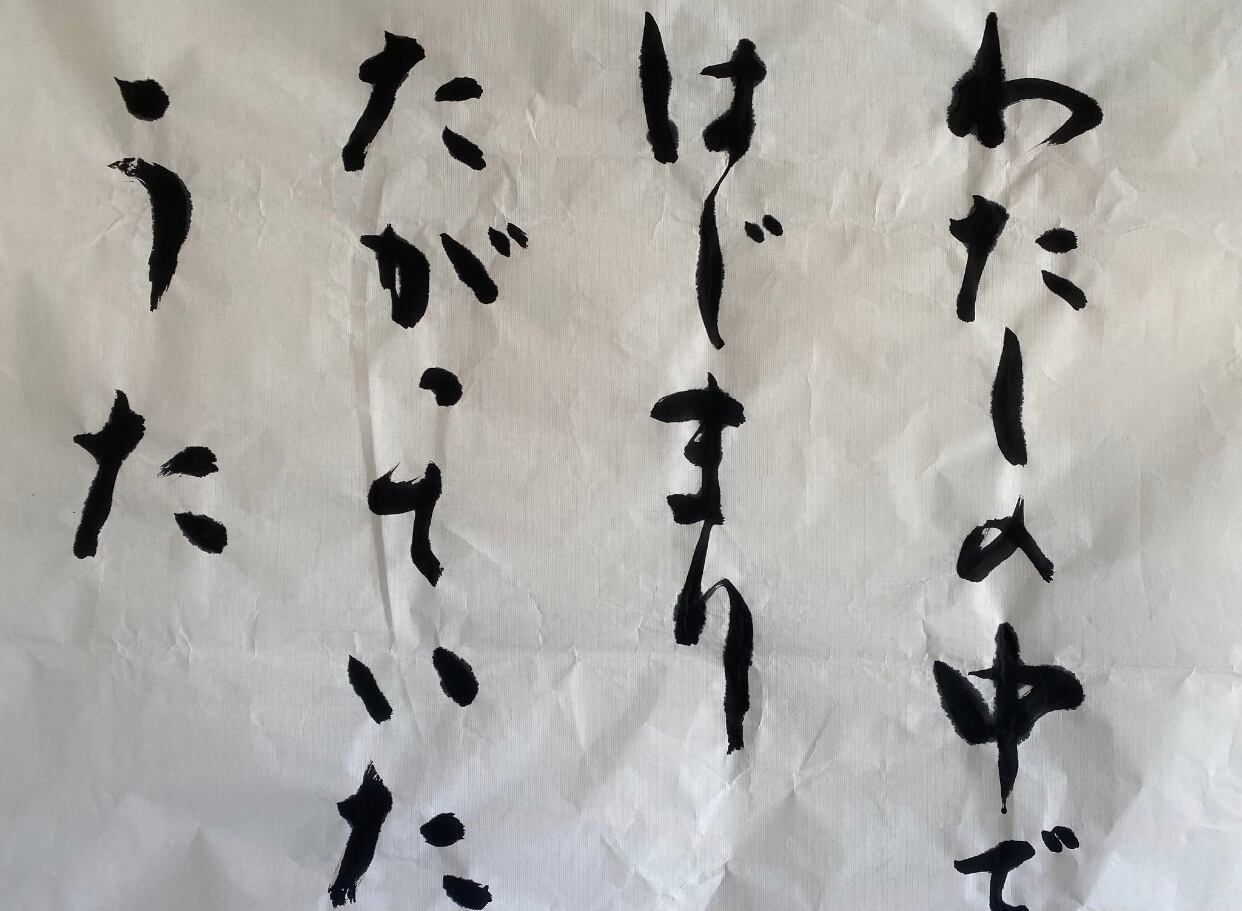 わたしの中で
はじまり
たがっていた
うた